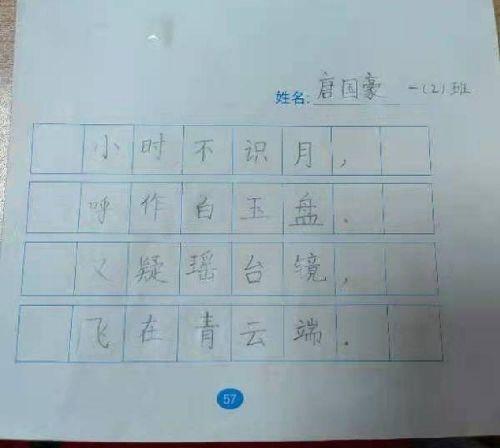 姓名: 唐国豪 一(2)班
小时不识月,
呼作白玉盘.
又疑瑶台镜,
飞在青云端.
57